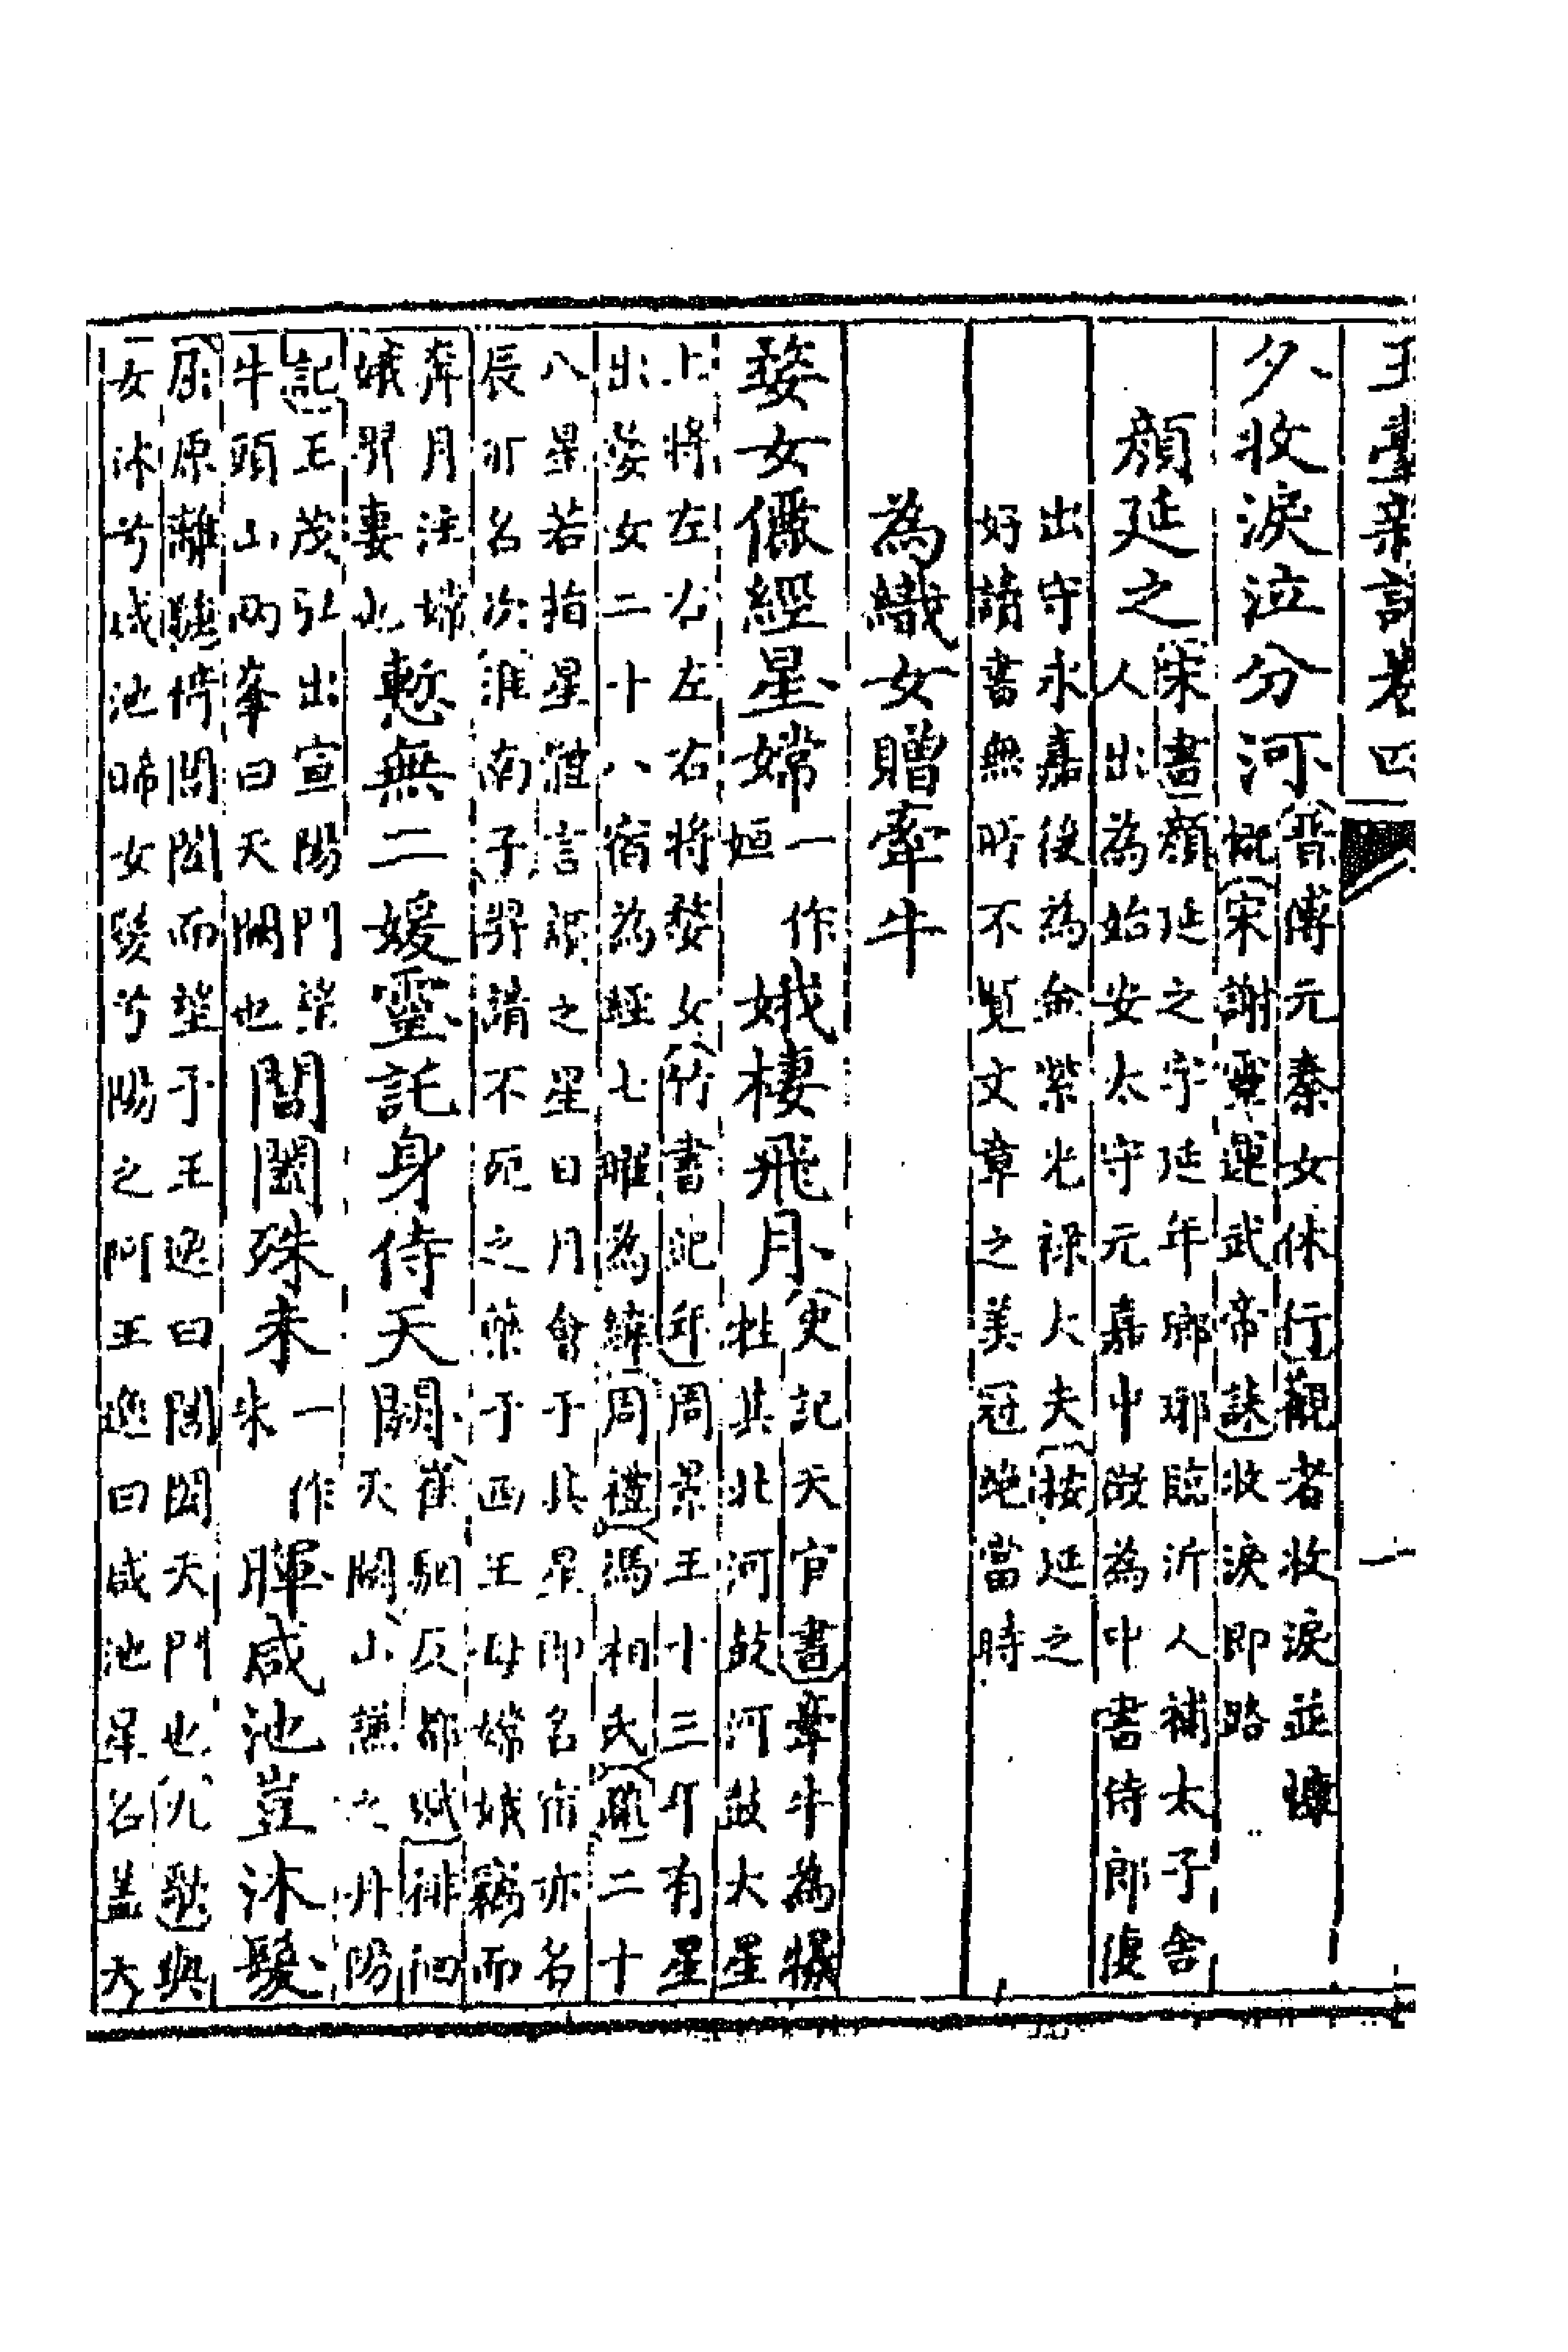 玉臺新詠卷四 一
夕收淚泣分河
晉傅元秦女休行觀者收淚並慷
慨宋謝靈運武帝誄收淚即路
顏延之
宋書顏延之字延年瑯琊臨沂人補太子舍
人出為始安太守元嘉中徵為中書侍郎復
出守永嘉後為金紫光祿大夫按延之
好讀書無所不覽文章之美冠絕當時
為織女贈牽牛
婺女儷經星嫦
一作
姮
娥棲飛月
史記天官書牽牛為犧
牲其北河鼓河鼓大星
上將左右左右將婺女竹書紀年周景王十三年有星
出婺女二十八宿為經七曜為緯周禮馮相氏疏二十
八星若指星體言謂之星日月會于其星即名宿亦名
辰亦名次淮南子羿請不死之藥于西王母嫦娥竊而
奔月注嫦
娥羿妻也
慙無二媛靈託身侍天闕
崔駰反都賦徘徊
天闕山謙之丹陽
記王茂弘出宣陽門望
牛頭山兩峯曰天闕也
閶闔殊未
一作
朱
暉咸池豈沐髮
屈原離騷倚閶闔而望予王逸曰閶闔天門也九歌與
女沐兮咸池晞女髮兮陽之阿王逸曰咸池星名蓋天